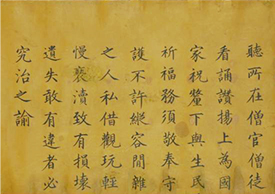 聽所在僧官僧徒
看誦讚揚上為國
家祝釐下與生民
祈福務須敬奉守
護不許縱容閒雜
之人私借觀玩輕
慢褻瀆致有損壞
遺失敢有違者必
究治之諭